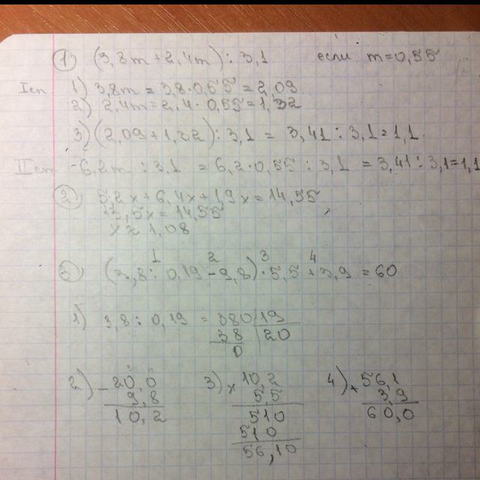 ① (3,8m+2,4m):3,1 если m=0,55
I сп 1) 3,8m=3,8·0,55=2,09
2) 2,4m=2,4·0,55=1,32
3) (2,09+1,32):3,1=3,41:3,1=1,1
II сп -6,2m:3,1=6,2·0,55:3,1=3,41:3,1=1,1
② 5,2x+6,4x+1,9x=14,55
13,5x=14,55
x≈1,08
③ (3,8:0,19-9,8)·5,5+3,9=60
1 2 3 4
1) 3,8:0,19=380|19
38 20
0
2) -20,0
9,8
10,2
3) ×10,2
5,5
510
510
56,10
4) +56,1
3,9
60,0